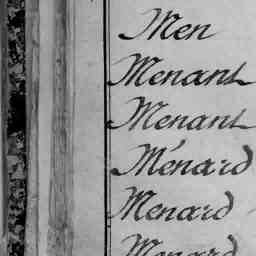 Men
Menant
Menant
Ménard
Menard
Menard